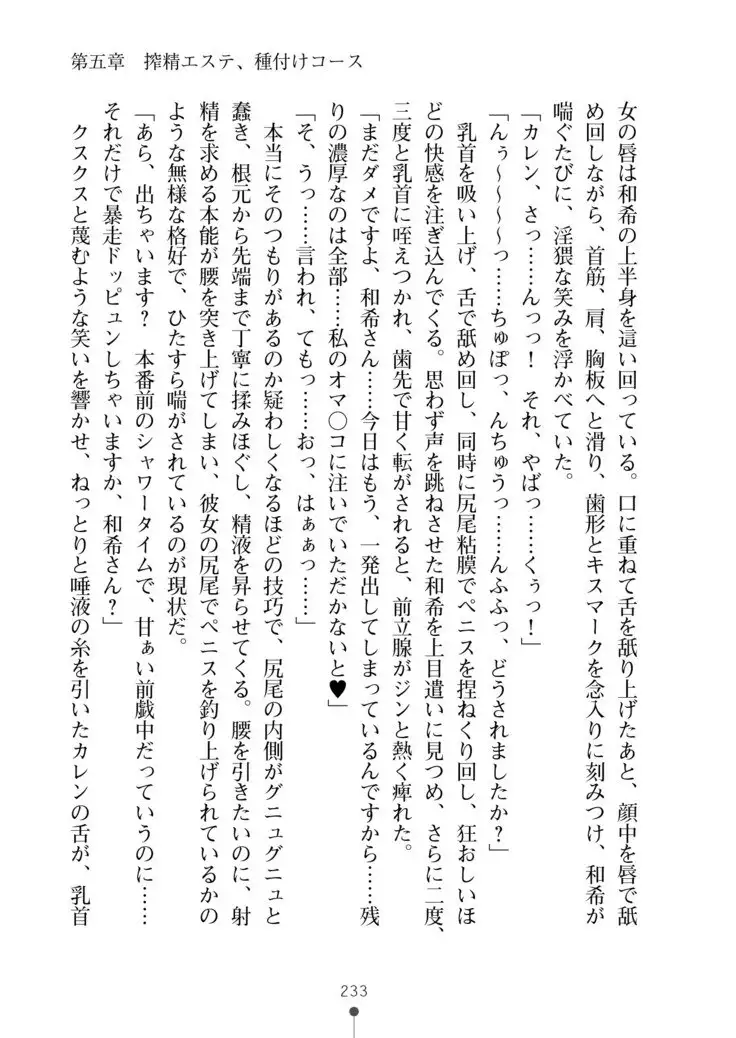 第五章　搾精エステ、種付けコース
女の唇は和希の上半身を這い回っている。口に重ねて舌を舐り上げたあと、顔中を唇で舐
め回しながら、首筋、肩、胸板へと滑り、歯形とキスマークを念入りに刻みつけ、和希が
喘ぐたびに、淫猥な笑みを浮かべていた。
「カレン、さっ……んっっ！　それ、やばっ……くぅっ！」
「んぅ～～～～っ……ちゅぽっ、んちゅうっ……んふふっ、どうされましたか？」
乳首を吸い上げ、舌で舐め回し、同時に尻尾粘膜でペニスを捏ねくり回し、狂おしいほ
どの快感を注ぎ込んでくる。思わず声を跳ねさせた和希を上目遣いに見つめ、さらに二度、
三度と乳首に咥えつかれ、歯先で甘く転がされると、前立腺がジンと熱く痺れた。
「まだダメですよ、和希さん……今日はもう、一発出してしまっているんですから……残
りの濃厚なのは全部……私のオマ〇コに注いでいただかないと♥」
「そ、うっ……言われ、てもっ……おっ、はぁぁっ……」
本当にそのつもりがあるのか疑わしくなるほどの技巧で、尻尾の内側がグニュグニュと
蠢き、根元から先端まで丁寧に揉みほぐし、精液を昇らせてくる。腰を引きたいのに、射
精を求める本能が腰を突き上げてしまい、彼女の尻尾でペニスを釣り上げられているかの
ような無様な格好で、ひたすら喘がされているのが現状だ。
「あら、出ちゃいます？　本番前のシャワータイムで、甘ぁい前戯中だっていうのに……
それだけで暴走ドッピュンしちゃいますか、和希さん？」
クスクスと蔑むような笑いを響かせ、ねっとりと唾液の糸を引いたカレンの舌が、乳首
233